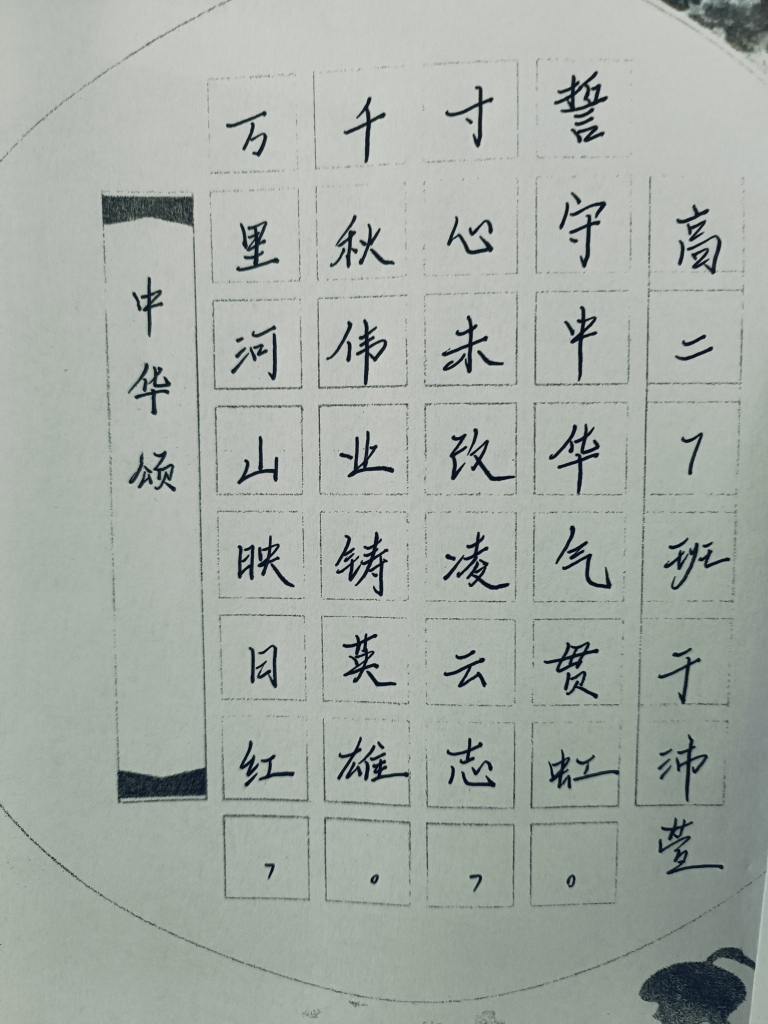 中华颂
万里河山映日红，
千秋伟业铸英雄。
寸心未改凌云志，
誓守中华气贯虹。
高二7班于沛萱